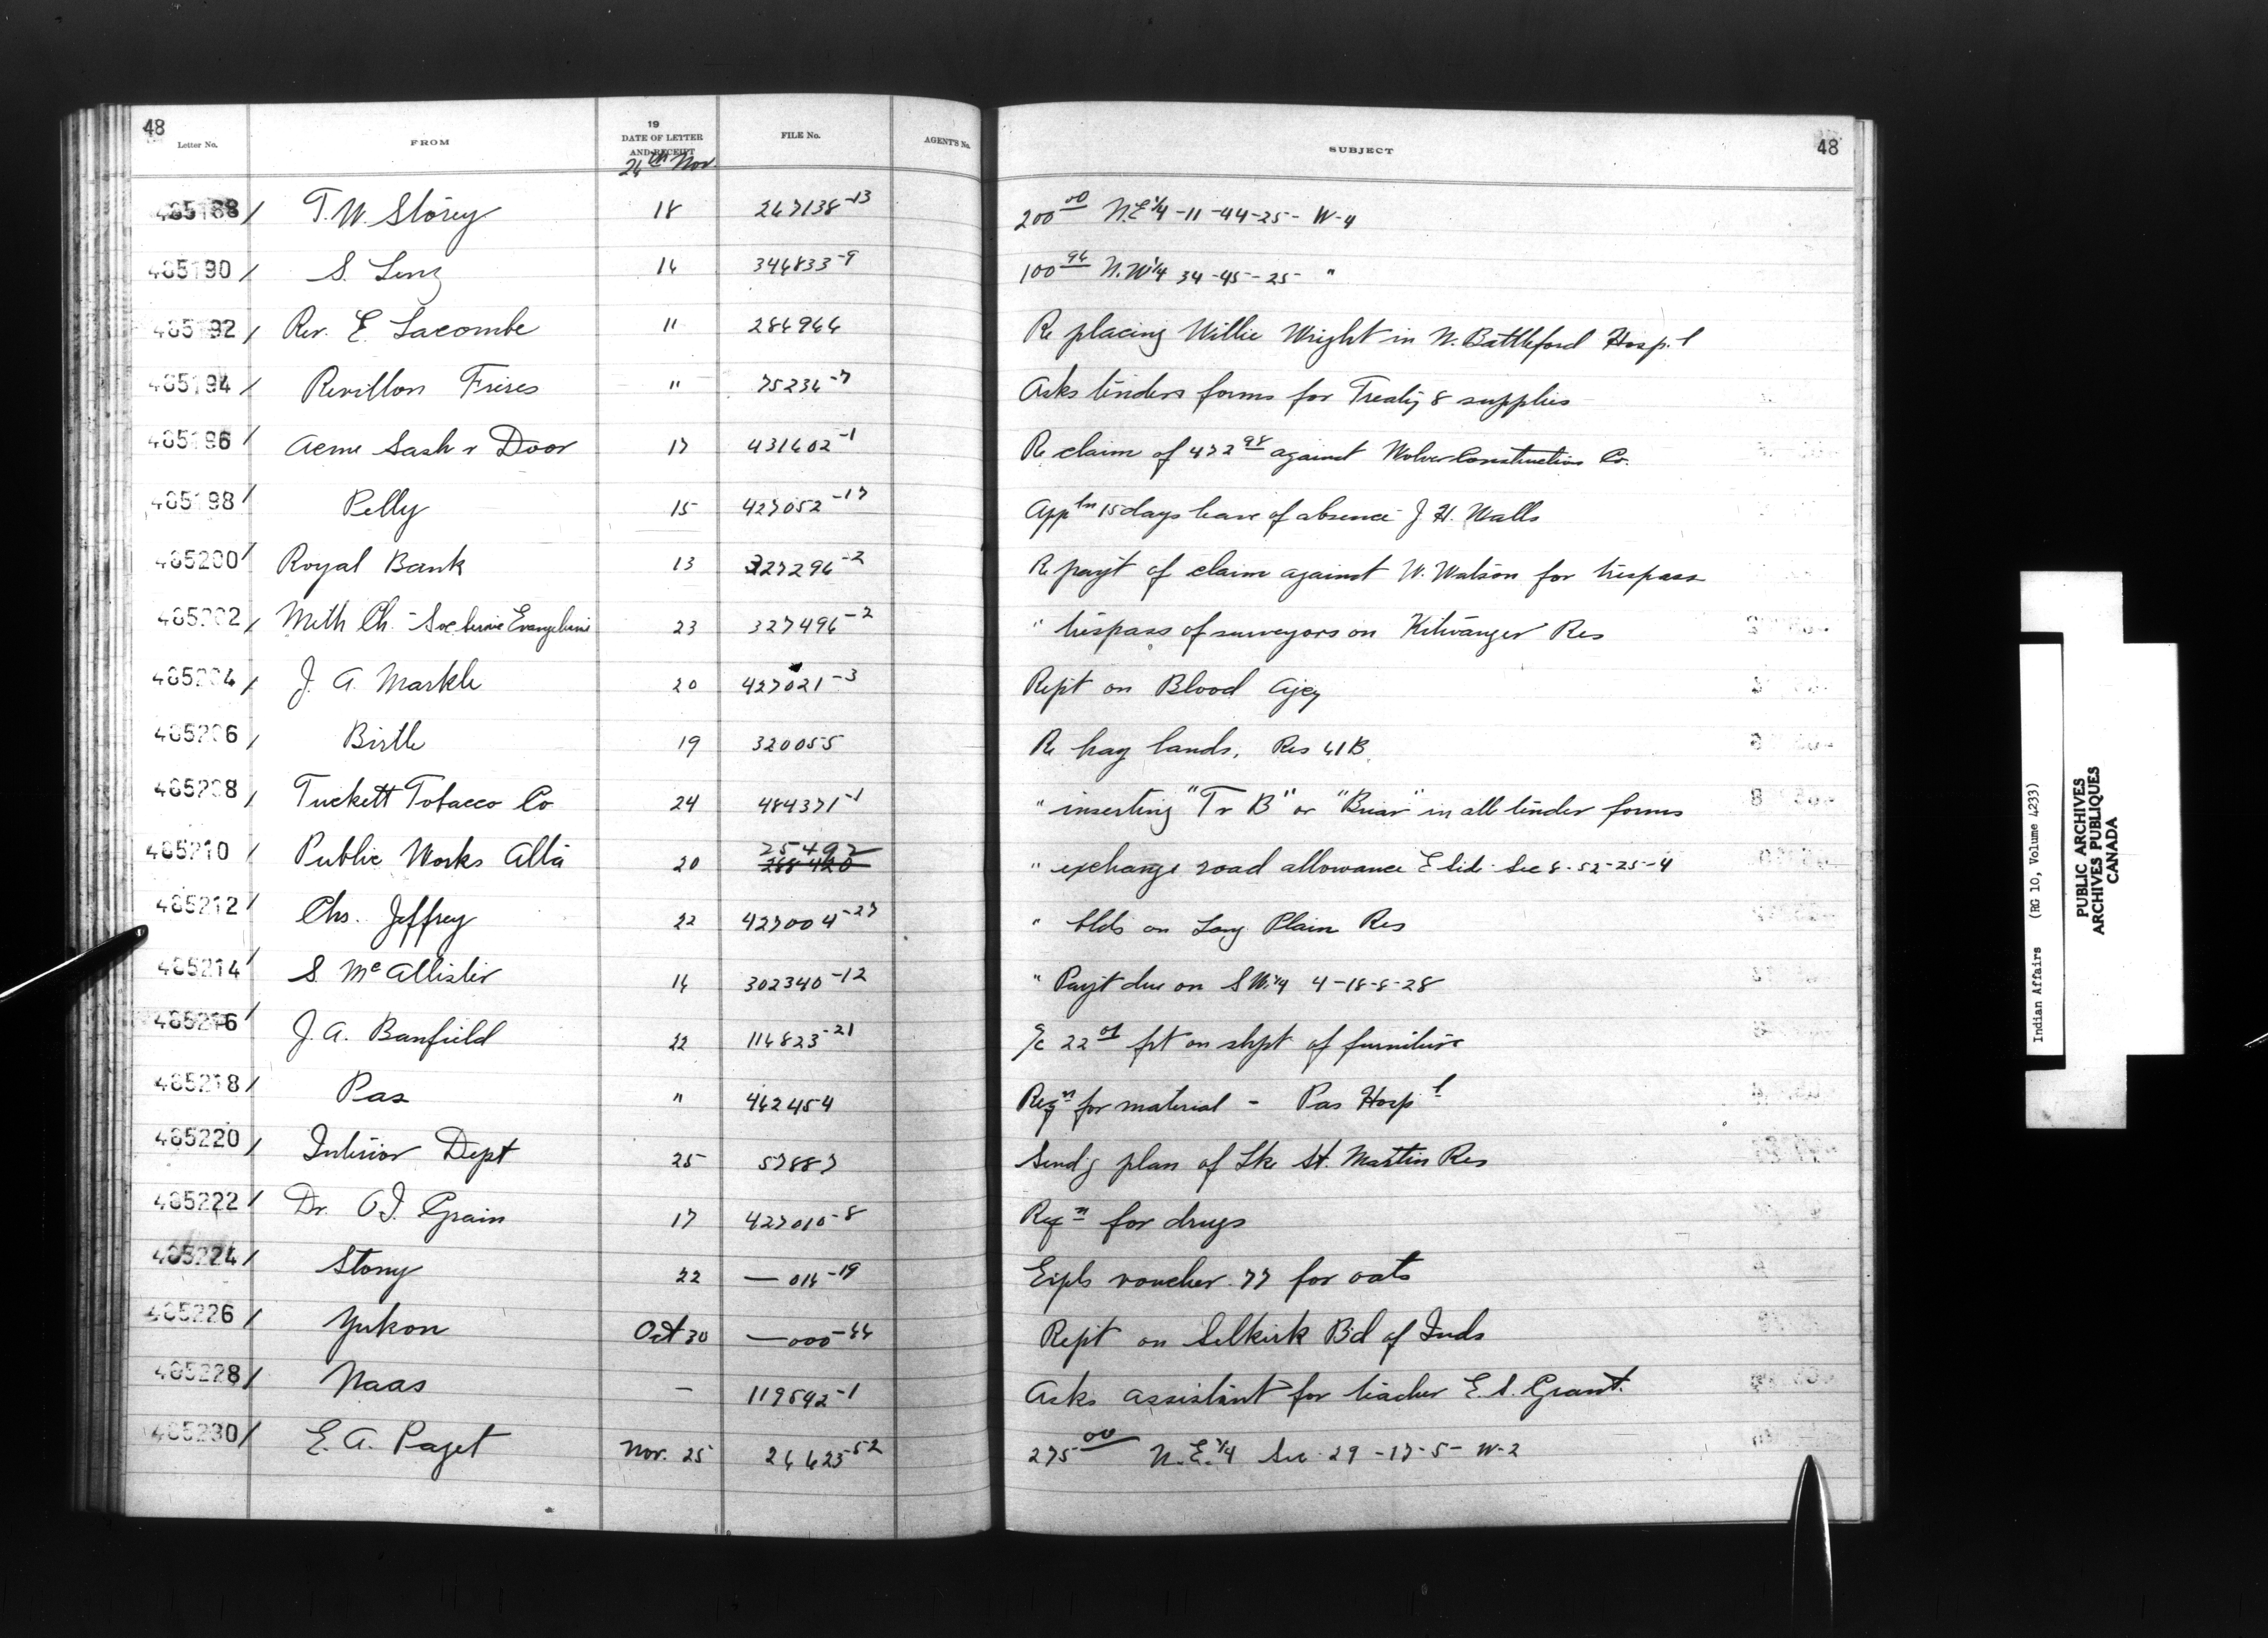 48
Letter No. FROM 19 DATE OF LETTER AND RECEIPT FILE No. AGENT'S No. SUBJECT 48
26th Nov.
485188/ T. W. Storey 18 267138-13 200 00 N.E 1/4 -11-44-25- W-4
485190/ S. Lenz 16 346833-9 100 96 N.W 1/4 34-45-25- "
485192/ Rev. E. Lacombe " 286966 Re placing Willie Wright in N. Battleford Hosp.l
485194/ Revillon Freres " 75236-7 Asks tenders forms for Treaty 8 supplies
485196/ Acme Sash & Door 17 431602-1 Re claim of 472 98 against Construction Co.
485198/ Pelly 15 427052-17 Appln 15 days leave of absence J. H. Walls
485200/ Royal Bank 13 327296-2 Re payt of claim against W. Watson for trespass
485202/ Meth Ch. - Soc 23 327496-2 " trespass of surveyors on Kitwanger Res
485204/ J. A. Markle 20 427021-3 Rept on Blood Agcy
485206/ Birtle 19 320055 Re hay lands, Res 61B.
485208/ Tuckett Tobacco Co 24 484371-1 " inserting "T & B" or "Briar" in all tender forms
485210/ Public Works Alta 20 25492 268420 " exchange road allowance E side Sec 8-52-25-4
485212/ Chs. Jeffrey 22 427004-27 " blds on Long Plain Res
485214/ S. McAllister 16 302340-12 " Payt due on S W. 1/4 4-18-8-28
485216/ J. A. Banfield 22 114823-21 a/c 22 01 frt on shpt of furniture
485218/ Pas " 462454 Reqn for material - Pas Hospl
485220/ Interior Dept 25 57887 Sendg plan of Lke St. Martin Res
485222/ Dr. O. I. Grain 17 427010-8 Reqn for drugs
485224/ Stony 22 — 016-19 Expls voucher 77 for oats
485226/ Yukon Oct 30 — 000-66 Rept on Selkirk Bd of Inds
485228/ Naas — 119542-1 Asks assistant for teacher E. S. Grant.
485230/ E. A. Paget Nov. 25 26623-52 275 00 N.E. 1/4 Sec 29-17-5- W-2
Indian Affairs (RG 10, Volume 4233)
PUBLIC ARCHIVES
ARCHIVES PUBLIQUES
CANADA